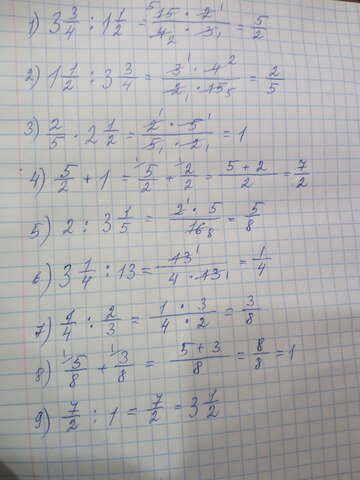 1) 3 3/4 : 1 1/2 = 15 · 2 / 4 · 3 = 5/2
2) 1 1/2 : 3 3/4 = 3 · 4 / 2 · 15 = 2/5
3) 2/5 · 2 1/2 = 2 · 5 / 5 · 2 = 1
4) 5/2 + 1 = 5/2 + 2/2 = 5 + 2 / 2 = 7/2
5) 2 : 3 1/5 = 2 · 5 / 16 = 5/8
6) 3 1/4 : 13 = 13 / 4 · 13 = 1/4
7) 1/4 : 2/3 = 1 · 3 / 4 · 2 = 3/8
8) 5/8 + 3/8 = 5 + 3 / 8 = 8/8 = 1
9) 7/2 : 1 = 7/2 = 3 1/2